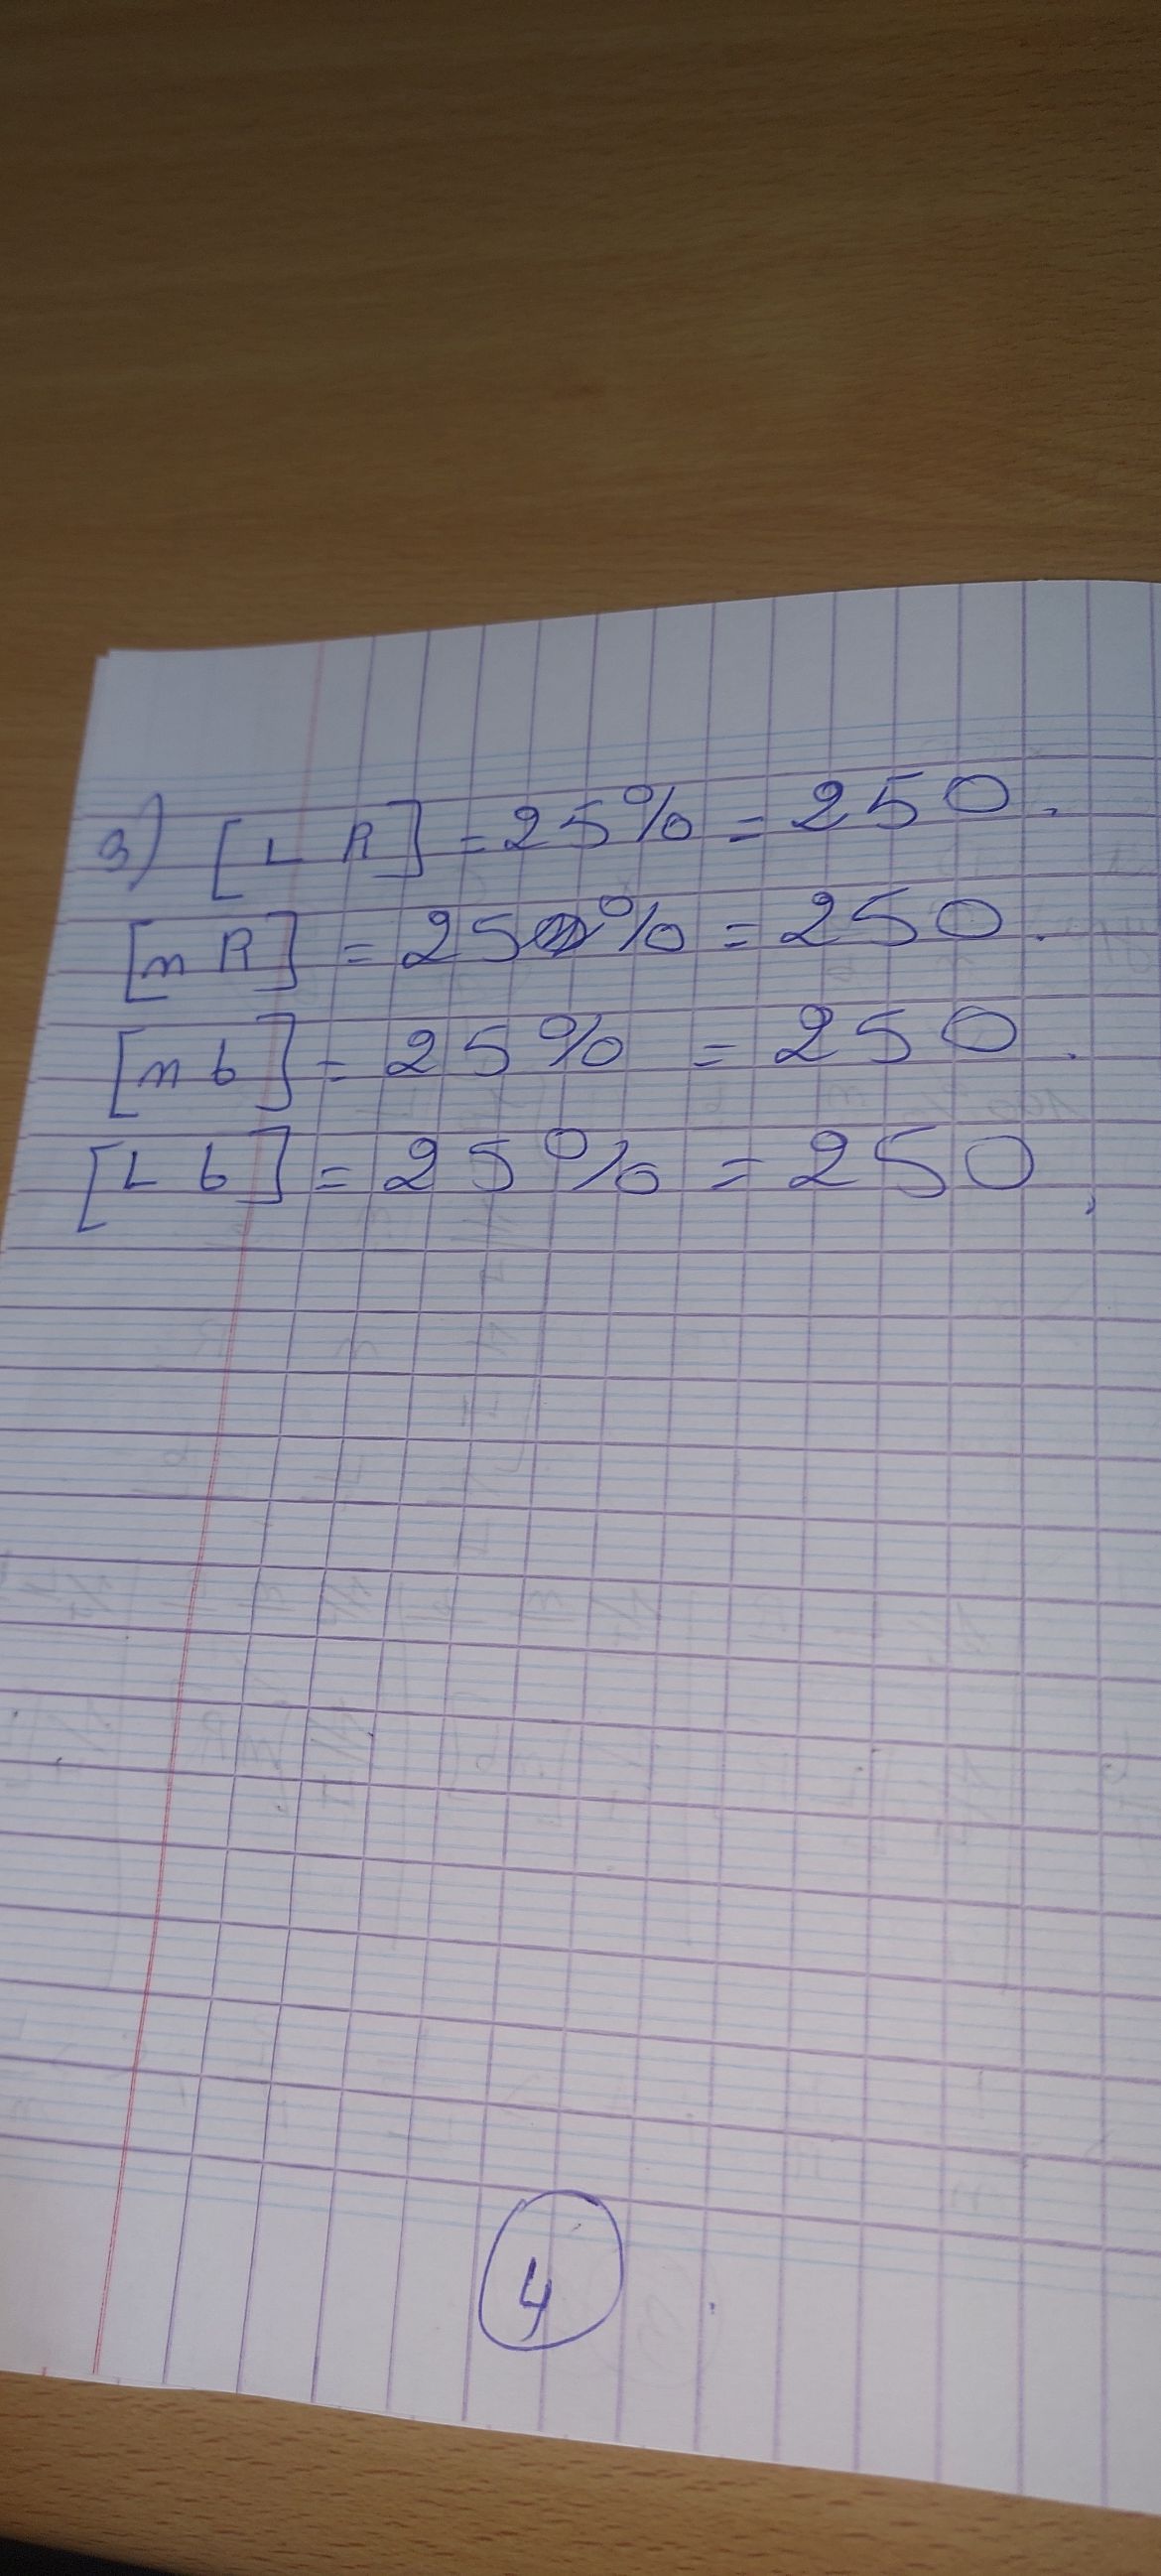 3) [L R] = 25% = 250.
[n R] = 25% = 250.
[n b] = 25% = 250.
[L b] = 25% = 250,
4